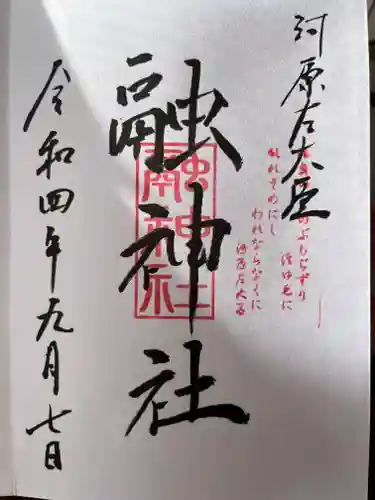 河原左大臣
のぶもぢずり
乱れそめにし
われならなくに
河原左大臣
融神社
融神社
令和四年九月七日